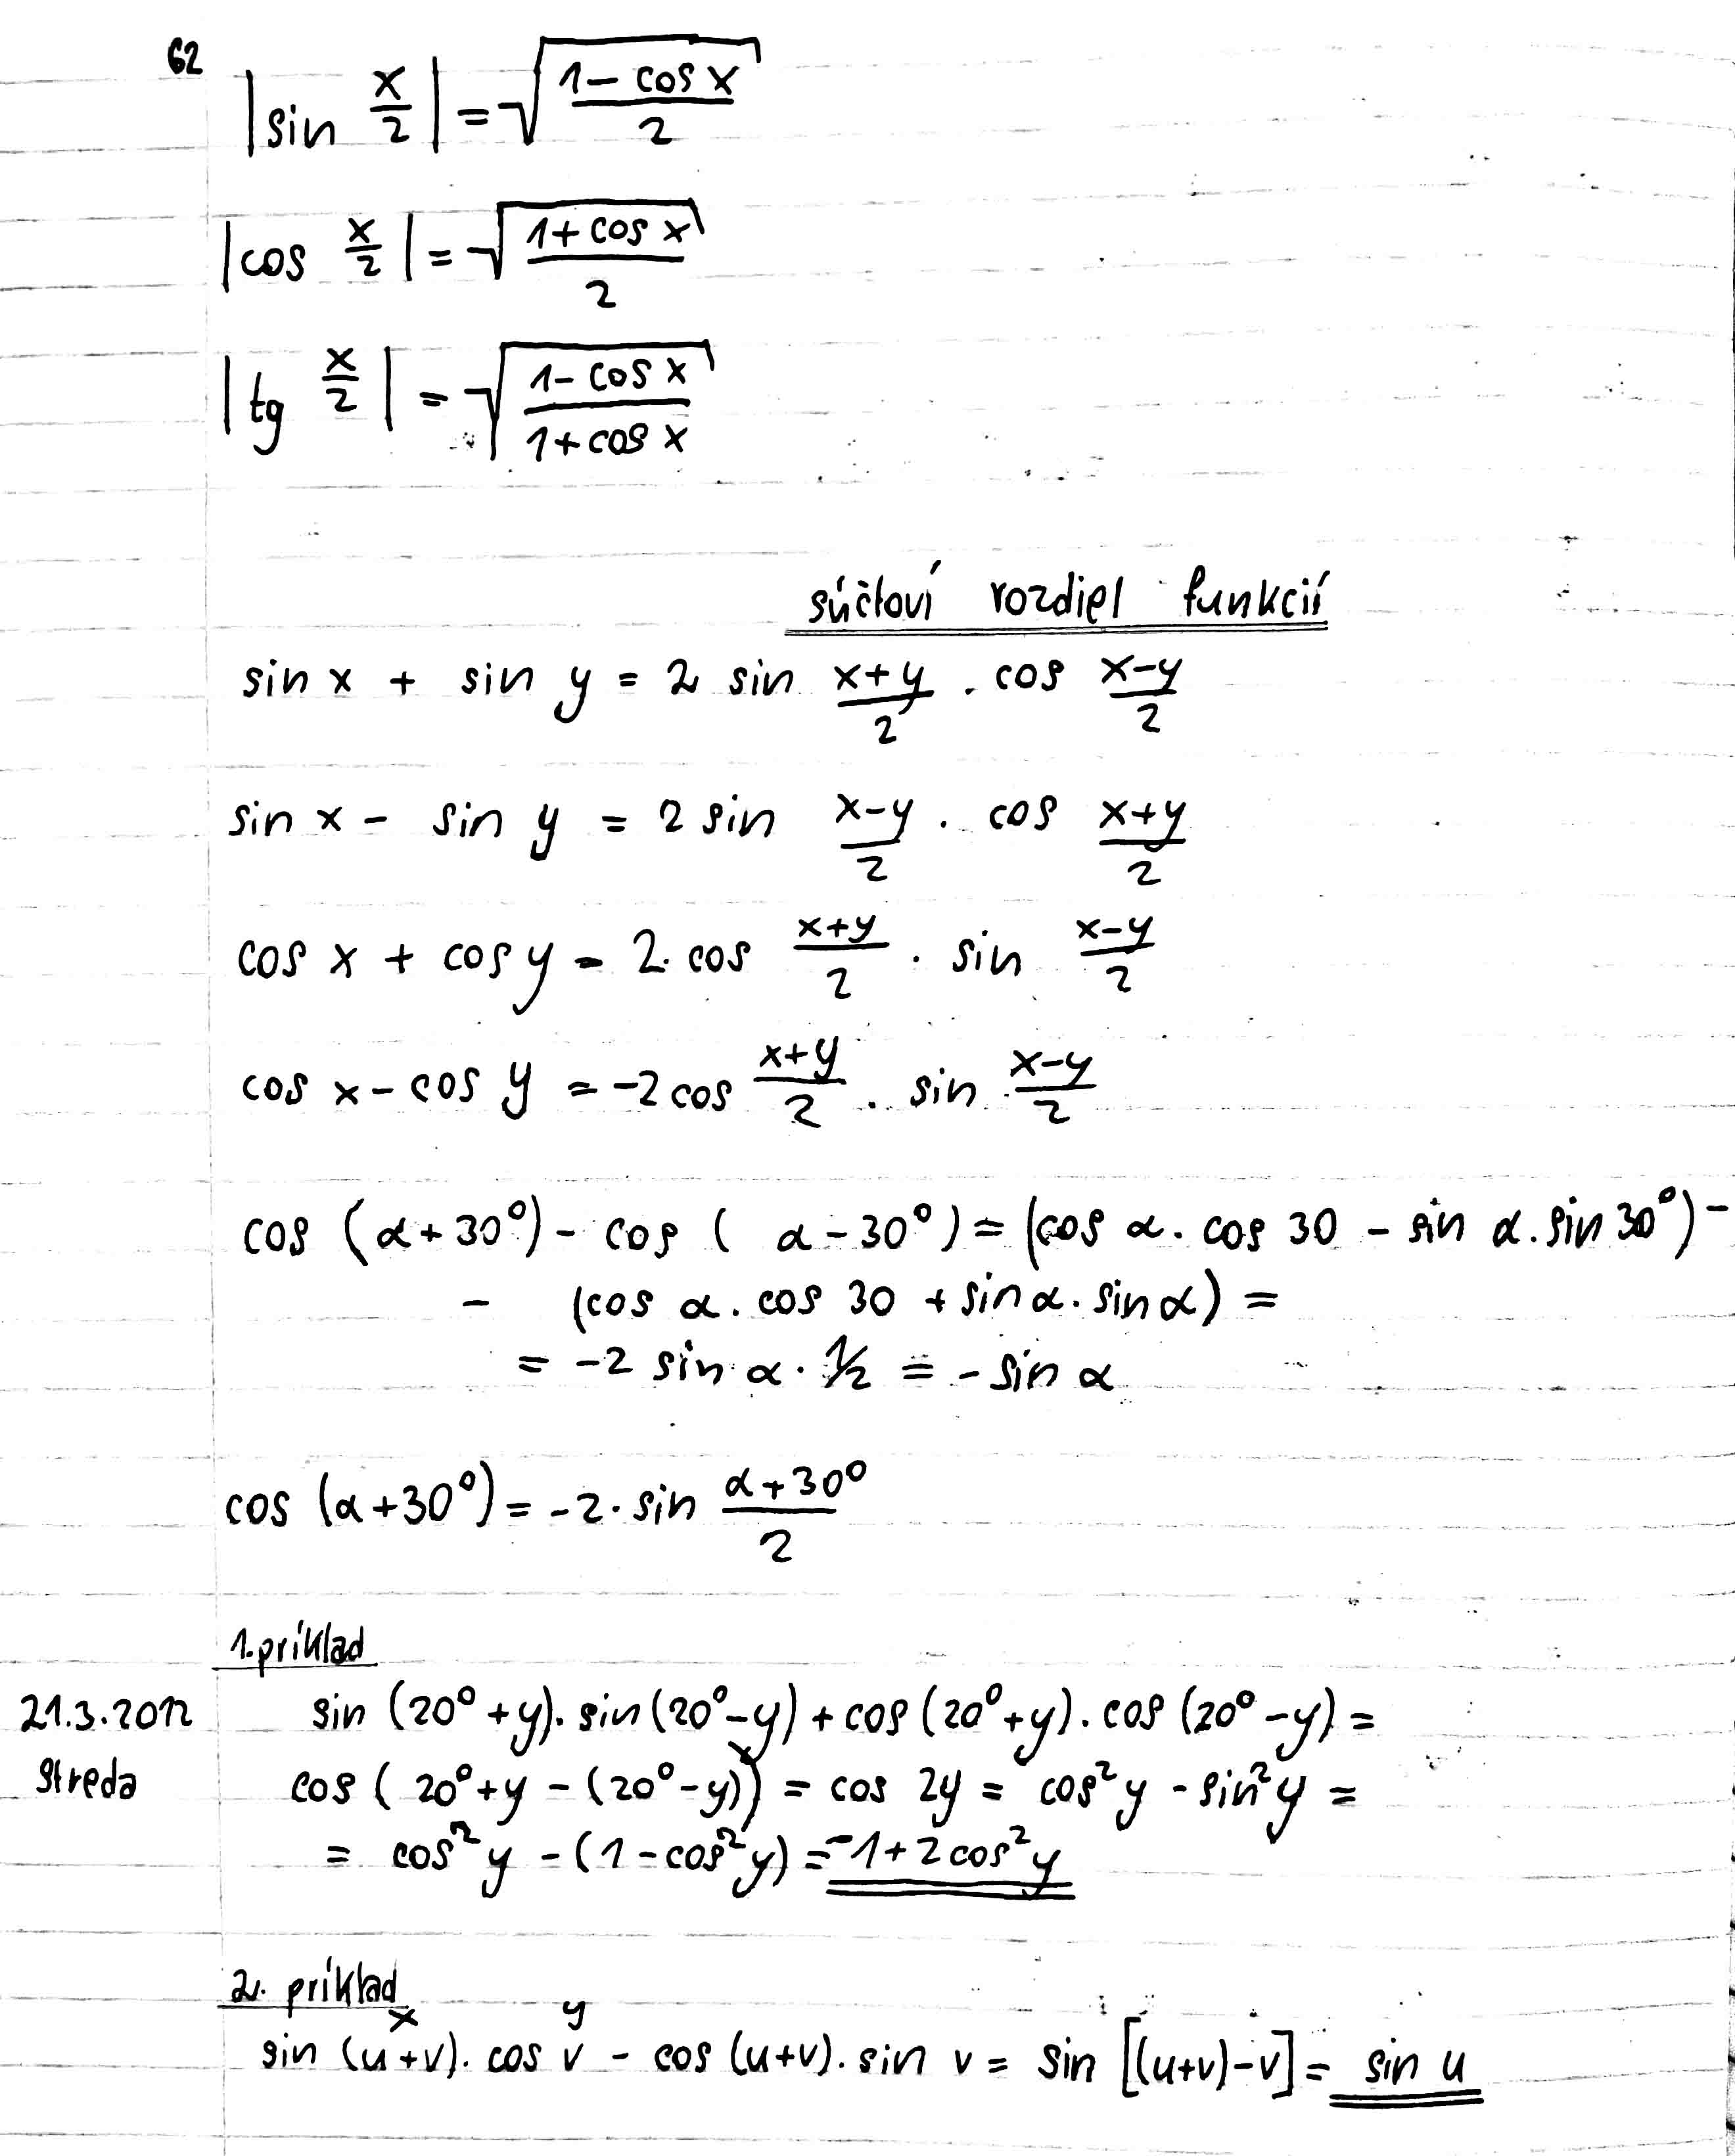 62
|sin x/2| = √((1 - cos x)/2)
|cos x/2| = √((1 + cos x)/2)
|tg x/2| = √((1 - cos x)/(1 + cos x))
súčtoví rozdiel funkcií
sin x + sin y = 2 sin (x+y)/2 . cos (x-y)/2
sin x - sin y = 2 sin (x-y)/2 . cos (x+y)/2
cos x + cos y = 2. cos (x+y)/2 . sin (x-y)/2
cos x - cos y = -2 cos (x+y)/2 . sin (x-y)/2
cos (α+30°) - cos ( α - 30°) = (cos α. cos 30 - sin α. sin 30°) -
- (cos α. cos 30 + sin α. sin α) =
= -2 sin α . 1/2 = - sin α
cos (α+30°) = -2. sin (α+30°)/2
1. príklad
21.3.2012 sin (20° + y). sin (20° - y) + cos (20° + y). cos (20° - y) =
streda cos ( 20° + y - (20° - y)) = cos 2y = cos² y - sin² y =
= cos² y - (1 - cos² y) = -1 + 2 cos² y
2. príklad
x y
sin (u+v). cos v - cos (u+v). sin v = sin [(u+v)-v] = sin u